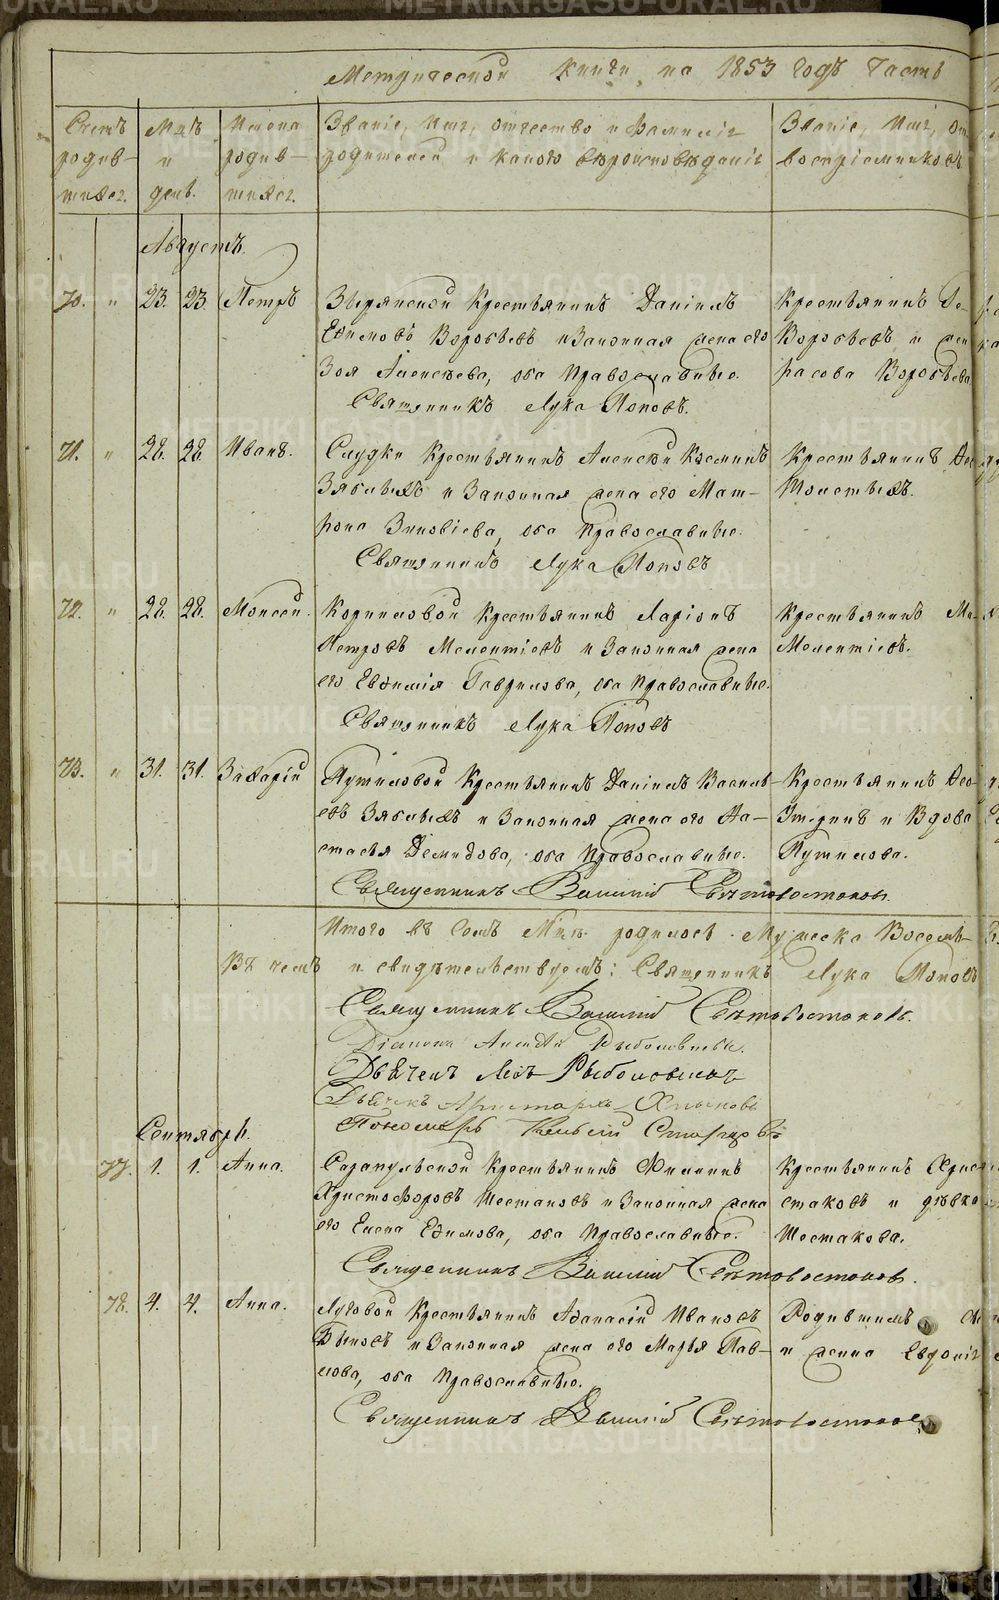 Метрической книги на 1853 годъ Часть
Счетъ родив-шихся.
Мцъ и день.
Имена родив-шихся.
Званіе, Имя, отчество и Фамилія
родителей и какого вѣроисповѣданія
Званіе, Имя, от
воспріемниковъ
Августъ.
70. " 23. 23. Петръ
Зырянской Крестьянинъ Даніилъ
Ефимовъ Воробьевъ и Законная жена его
Зоя Алексѣева, оба Православные.
Священникъ Лука Поповъ.
Крестьянинъ
Воробьевъ и жен
расова Воробьева
71. " 28. 28. Иванъ.
Слудки Крестьянинъ Алексѣй Козминъ
Зяблыхъ и Законная жена его Мат-
рона Зиновіева, оба Православные.
Священникъ Лука Поповъ
Крестьянинъ
Толстыхъ.
72. " 28. 28. Моисей.
Корниловой Крестьянинъ Ларіонъ
Петровъ Мелентіевъ и Законная жена
его Евфимія Гаврилова, оба Православные.
Священникъ Лука Поповъ
Крестьянинъ Ма-
Мелентіевъ.
73. " 31. 31. Захарій
Путиловой Крестьянинъ Даніилъ Василь-
евъ Зяблыхъ и Законная жена его На-
стасья Демидова, оба Православные.
Священникъ Василій Свѣтовостоковъ.
Крестьянинъ Ѳео
и Вдова
Путилова.
Итого въ семъ Мцѣ родилось Мужеска Восемь
Въ чемъ и свидѣтельствуемъ: Священникъ Лука Поповъ
Священникъ Василій Свѣтовостоковъ.
Діаконъ
Дьячекъ Левъ Рыболовлевъ
Дьячекъ Аристархъ
Пономарь
Сентябрь.
77. 1. 1. Анна.
Сарапульской Крестьянинъ Филиппъ
Христофоровъ Шестаковъ и Законная жена
его Елена Ефимова, оба Православные.
Священникъ Василій Свѣтовостоковъ.
Крестьянинъ Хрис
стаковъ и дѣвка
Шестакова.
78. 4. 4. Анна.
Луговой Крестьянинъ Афанасій Ивановъ
Быковъ и Законная жена его Марья Пав-
лова, оба Православные.
Священникъ Василій Свѣтовостоковъ
Родившимъ
и жена Евдокія
METRIKI.GASO-URAL.RU